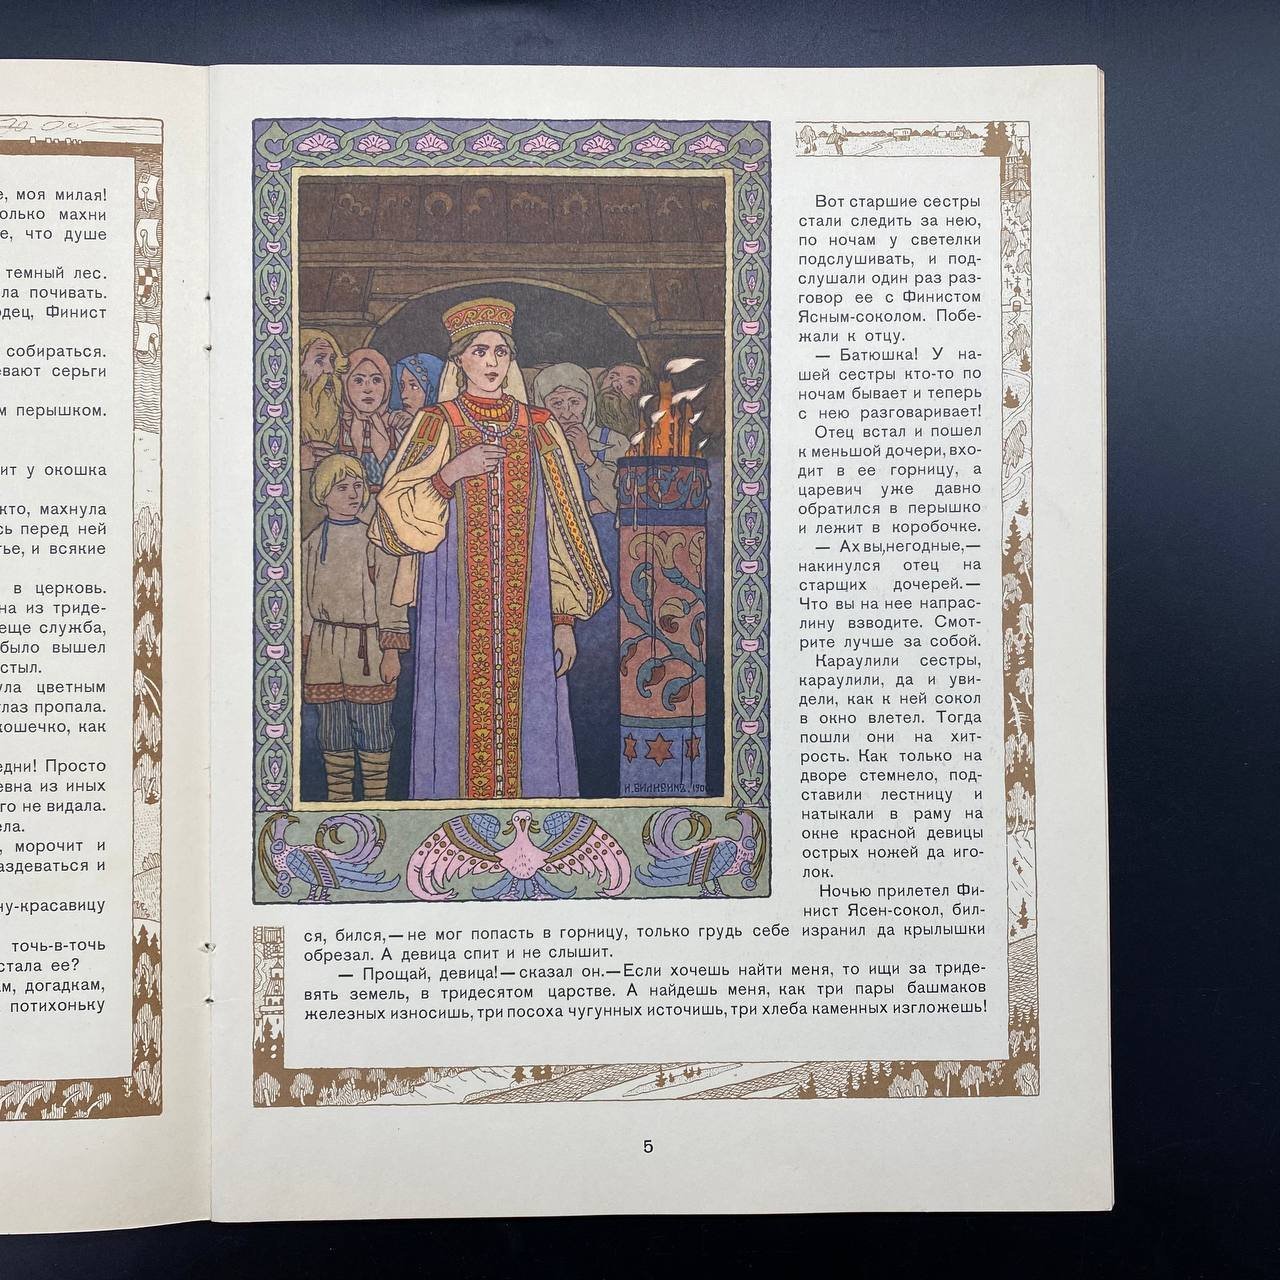 е, моя милая!
олько махни
е, что душе
темный лес.
ла почивать.
одец, Финист
собираться.
евают серьги
м перышком.
ит у окошка
кто, махнула
сь перед ней
тье, и всякие
в церковь.
на из триде-
еще служба,
было вышел
стыл.
ула цветным
глаз пропала.
кошечко, как
едни! Просто
евна из иных
го не видала.
ела.
, морочит и
аздеваться и
ну-красавицу
точь-в-точь
стала ее?
м, догадкам,
потихоньку
Вот старшие сестры
стали следить за нею,
по ночам у светелки
подслушивать, и под-
слушали один раз раз-
говор ее с Финистом
Ясным-соколом. Побе-
жали к отцу.
— Батюшка! У на-
шей сестры кто-то по
ночам бывает и теперь
с нею разговаривает!
Отец встал и пошел
к меньшой дочери, вхо-
дит в ее горницу, а
царевич уже давно
обратился в перышко
и лежит в коробочке.
— Ах вы, негодные, —
накинулся отец на
старших дочерей. —
Что вы на нее напрас-
лину взводите. Смот-
рите лучше за собой.
Караулили сестры,
караулили, да и уви-
дели, как к ней сокол
в окно влетел. Тогда
пошли они на хит-
рость. Как только на
дворе стемнело, под-
ставили лестницу и
натыкали в раму на
окне красной девицы
острых ножей да иго-
лок.
Ночью прилетел Фи-
нист Ясен-сокол, бил-
ся, бился, — не мог попасть в горницу, только грудь себе изранил да крылышки
обрезал. А девица спит и не слышит.
— Прощай, девица! — сказал он. — Если хочешь найти меня, то ищи за триде-
вять земель, в тридесятом царстве. А найдешь меня, как три пары башмаков
железных износишь, три посоха чугунных источишь, три хлеба каменных изгложешь!
И. БИЛИБИНЪ. 1900
5